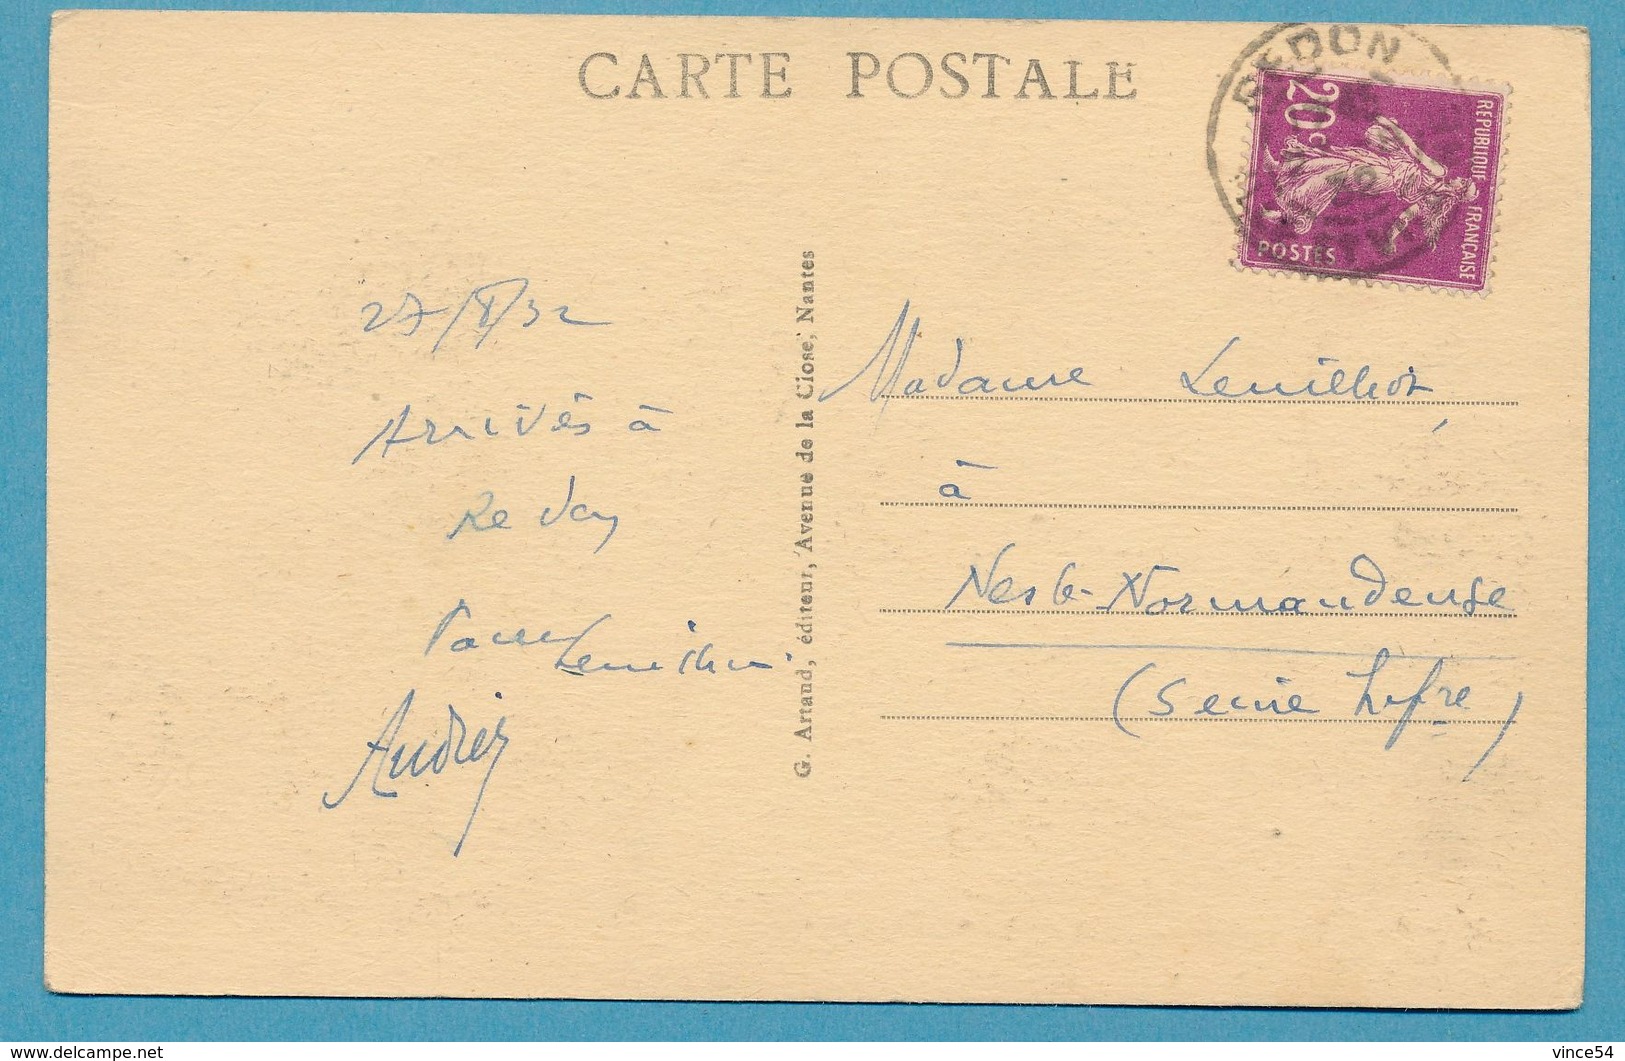 CARTE POSTALE
REDON
20c
REPUBLIQUE FRANCAISE
POSTES
27/8/32
Arrivés à
Redon
Lenilliot
Andrée
G. Artaud, éditeur, Avenue de la Close, Nantes
Madame Lenilliot,
à
Nesle-Normandeuse
(Seine Infre)
delcampe.net
vince54